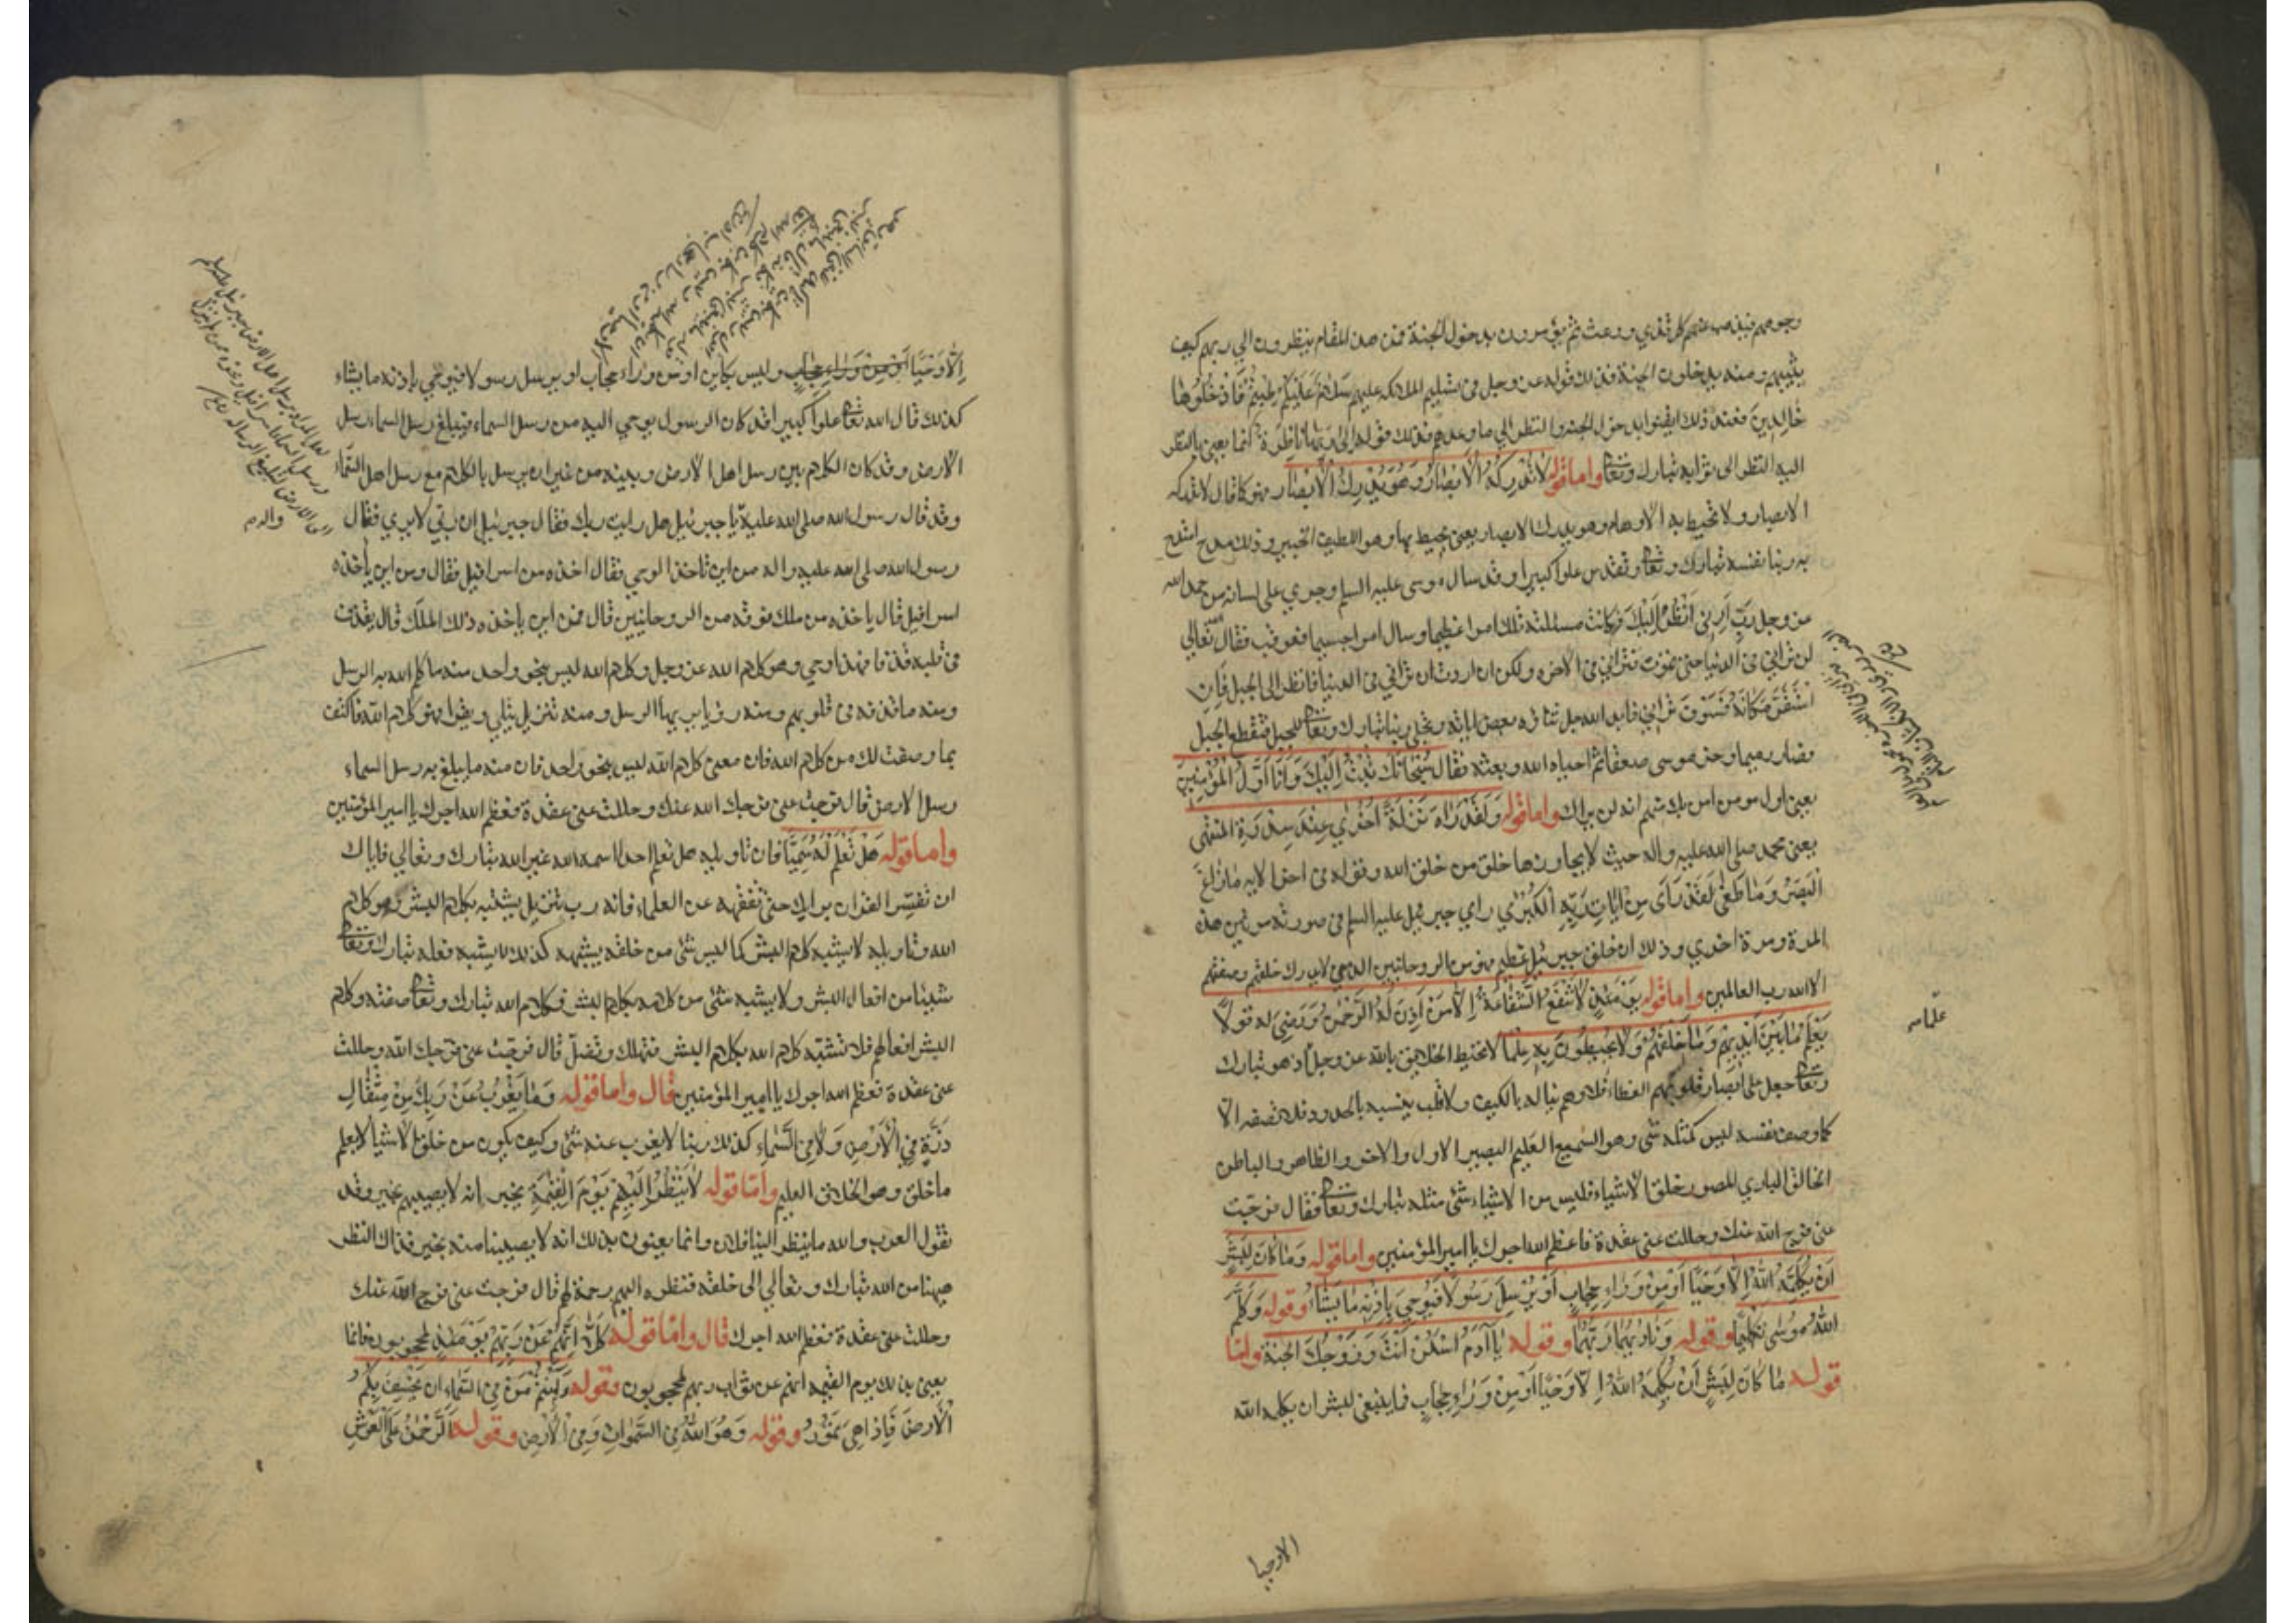 وجوههم فيذهب عنهم كل قذي ووعث ثم يؤمرون بدخول الجنة فمن هذا المقام ينظرون الي ربهم كيف
يثيبهم ومنه يدخلون الجنة فذلك قوله عز وجل في تسليم الملائكه عليهم سلام عليكم طبتم فادخلوها
خالدين فعند ذلك ايقنوا بدخول الجنة والنظر الي ما وعدهم فذلك قوله الى ربها ناظرة انما يعني بالنظر
اليه النظر الى ثوابه تبارك وتعالى واما قوله لا تدركه الابصار وهو يدرك الابصار فهو كما قال لا تدركه
الابصار ولا تحيط به الاوهام وهو يدرك الابصار يعني يحيط بها وهو اللطيف الخبير وذلك مدح امتدح
به ربنا نفسه تبارك وتعالى وتقدس علوا كبيرا وقد سال موسى عليه السلم وجري على لسانه من حمد الله
عز وجل رب ارني انظر اليك فكانت مسئلته تلك امرا عظيما وسال امرا جسيما فعوقب فقال الله تعالي
لن تراني في الدنيا حتى تموت فتراني في الاخره ولكن ان اردت ان تراني في الدنيا فانظر الى الجبل فان
استقر مكانه فسوف تراني فابدى الله جل ثناؤه بعض اياته وتجلي ربنا تبارك وتعالى للجبل فتقطع الجبل
فصار رميما وخر موسى صعقا ثم احياه الله وبعثه فقال سبحانك تبت اليك وانا اول المؤمنين
يعني اول مومن امن بك منهم انه لن يراك واما قوله ولقد رآه نزلة اخري عند سدرة المنتهى
يعني محمد صلى الله عليه واله حيث لا يجاوزها خلق من خلق الله وقوله في اخر الايه ما زاغ
البصر وما طغى لقد رأى من ايات ربه الكبري راي جبرئيل عليه السلم في صورته مرتين هذه
المرة ومرة اخري وذلك ان خلق جبرئيل عظيم فهو من الروحانيين الذي لا يدرك خلقهم وصفتهم
الا الله رب العالمين واما قوله يومئذ لا تنفع الشفاعة الا من اذن له الرحمن ورضي له قولا
يعلم ما بين ايديهم وما خلفهم ولا يحيطون به علما لا تحيط الخلائق بالله عز وجل اذ هو تبارك
وتعالى جعل على ابصار قلوبهم الغطاء فلا وهم يناله بالكيف ولا قلب يثبته بالحد ود فلا تصفه الا
كما وصف نفسه ليس كمثله شى وهو السميع العليم البصير الاول والاخر والظاهر والباطن
الخالق الباري المصور خلق الاشياء فليس من الاشياء شئ مثله تبارك وتعالى فقال فرجت
عني فرج الله عنك وحللت عني عقدة فاعظم الله اجرك يا امير المؤمنين واما قوله وما كان لبشر
ان يكلمه الله الا وحيا او من وراء حجاب او يرسل رسولا فيوحي باذنه ما يشاء وقوله وكلم
الله موسى تكليما وقوله وناداهما ربهما وقوله يا آدم اسكن انت وزوجك الجنة واما
قوله ما كان لبشر ان يكلمه الله الا وحيا او من وراء حجاب فما ينبغي لبشر ان يكلمه الله
علما
الا وحيا
الا وحيا او من وراء حجاب وليس بكاين او من وراء حجاب او يرسل رسولا فيوحي باذنه ما يشاء
كذلك قال الله تعالى علوا كبيرا قد كان الرسول يوحي اليه من رسل السماء فيبلغ رسل السماء رسل
الارض وقد كان الكلام بين رسل اهل الارض وبينه من غير ان يرسل بالكلام مع رسل اهل السماء
وقد قال رسول الله صلى الله عليه يا جبرئيل هل رايت ربك فقال جبرئيل ان ربي لا يري فقال
رسول الله صلى الله عليه واله من اين تاخذ الوحي فقال اخذه من اسرافيل فقال ومن اين ياخذه
اسرافيل قال ياخذه من ملك فوقه من الروحانيين قال فمن اين ياخذه ذلك الملك قال يقذف
في قلبه قذفا فهذا وحي وهو كلام الله عز وجل وكلام الله ليس بنحو واحد منه ما كلم الله به الرسل
ومنه ما قذفه في قلوبهم ومنه رؤيا يريها الرسل ومنه تنزيل يتلي ويقرا فهو كلام الله فاكتف
بما وصفت لك من كلام الله فان معنى كلام الله ليس بنحو واحد فان منه ما يبلغ به رسل السماء
رسل الارض قال فرجت عني فرجك الله عنك وحللت عني عقدة فعظم الله اجرك يا امير المؤمنين
واما قوله هل تعلم له سميا فان تاويله هل تعلم احدا اسمه الله غير الله تبارك وتعالي فاياك
ان تفسر القران برايك حتى تفقهه عن العلماء فانه رب تنزيل يشتبه بكلام البشر وهو كلام
الله وتاويله لا يشبه كلام البشر كما ليس شئ من خلقه يشبهه كذلك لا يشبه فعله تبارك وتعالى
شيئا من افعال البشر ولا يشبه شئ من كلامه بكلام البشر فكلام الله تبارك وتعالى صفته وكلام
البشر افعالهم فلا تشبه كلام الله بكلام البشر فتهلك وتضل قال فرجت عني فرجك الله وحللت
عني عقدة فعظم الله اجرك يا امير المؤمنين قال واما قوله وما يعزب عن ربك من مثقال
ذرة في الارض ولا في السماء كذلك ربنا لا يعزب عنه شئ وكيف يكون من خلق الاشيا لا يعلم
ما خلق وهو الخلاق العليم واما قوله لا ينظر اليهم يوم القيمة يخبر انه لا يصيبهم بخير وقد
يقول العرب والله ما ينظر الينا فلان وانما يعنون بذلك انه لا يصيبنا منه بخير فذاك النظر
ههنا من الله تبارك وتعالي الى خلقه فنظره اليهم رحمة لهم قال فرجت عني فرج الله عنك
وحللت عني عقدة فعظم الله اجرك قال واما قوله كلا انهم عن ربهم يومئذ لمحجوبون فانما
يعني بذلك يوم القيمه انهم عن ثواب ربهم لمحجوبون وقوله ءامنتم من في السماء ان يخسف بكم
الارض فاذا هي تمور وقوله وهو الله في السموات وفي الارض وقوله الرحمن على العرش